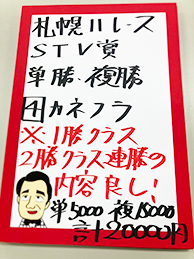 札幌11レース
STV賞
単勝、複勝
4カネフラ
※1勝クラス
2勝クラス連勝の
内容良し!
単5000 複15000
計20000円